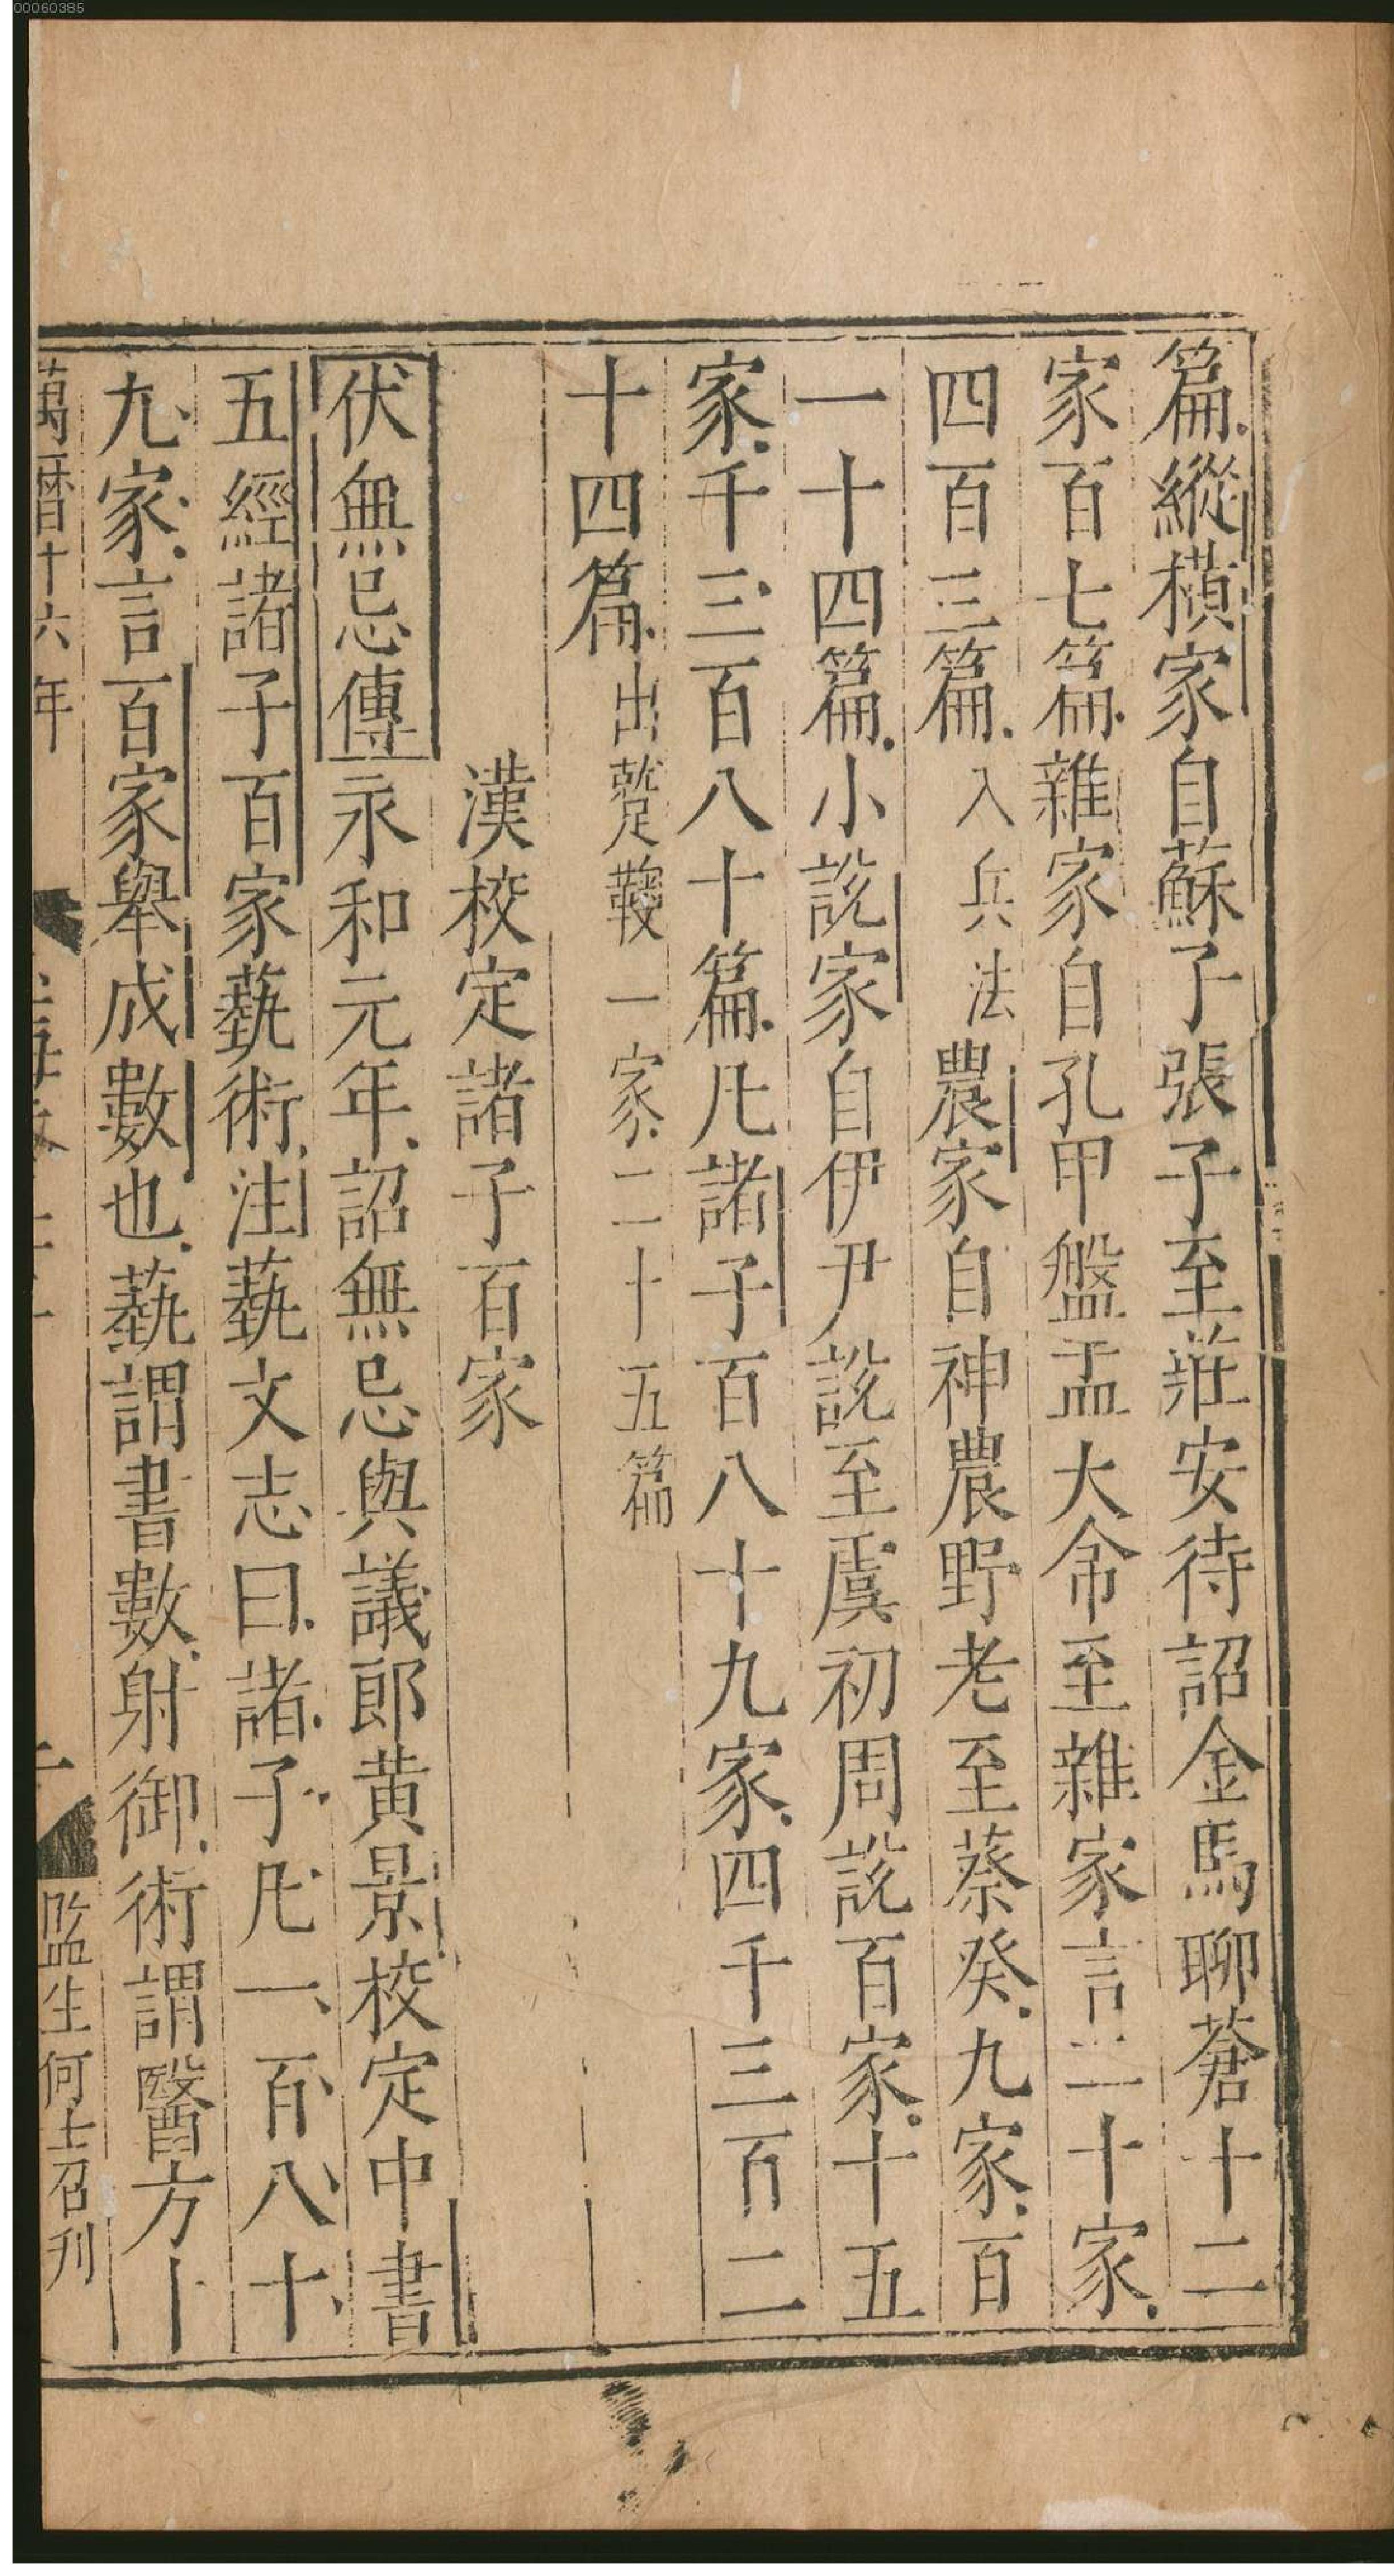 00060385
篇縱横家自蘇子張子至莊安待詔金馬聊蒼十二
家百七篇雜家自孔甲盤盂大㠪至雜家言二十家
四百三篇入兵法農家自神農野老至蔡癸九家百
一十四篇小說家自伊尹說至虞初周說百家十五
家千三百八十篇凡諸子百八十九家四千三百二
十四篇出蹵鞠一家二十五篇
漢校定諸子百家
伏無忌傳永和元年詔無忌與議郎黄景校定中書
五經諸子百家藝術注藝文志曰諸子凡一百八十
九家言百家舉成數也藝謂書數射御術謂醫方卜
萬曆十六年
監生何士召刋